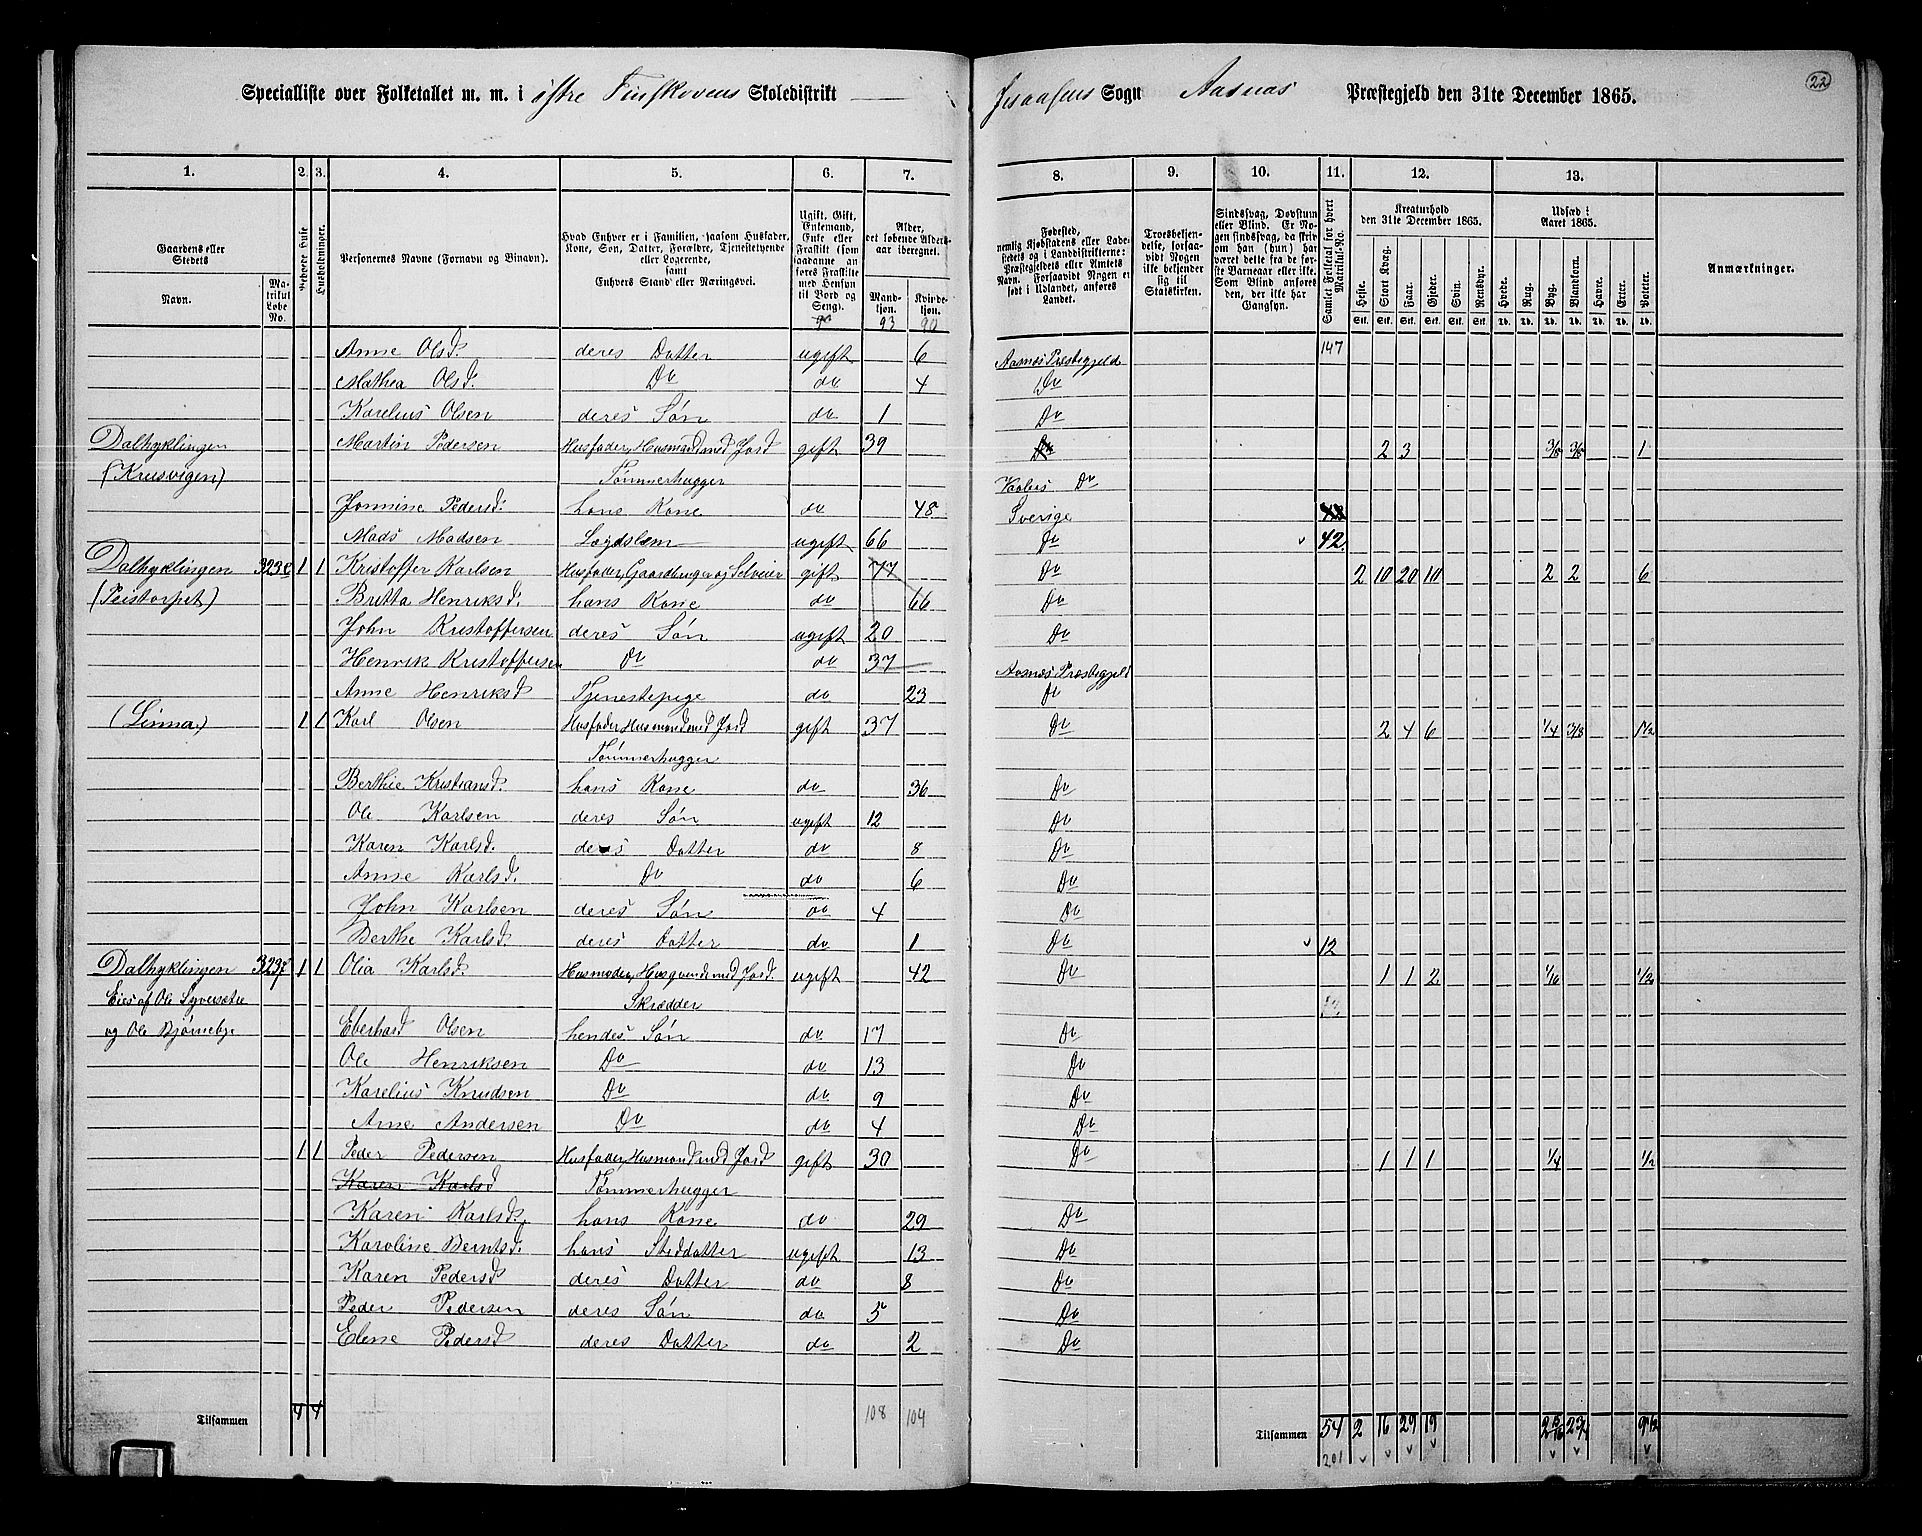 22
Specialliste over Folketallet m. m. i østre Finskovens Skoledistrikt — Sogn Aasnæs Præstegjeld den 31te December 1865.
1. 2. 3. 4. 5. 6. 7. 8. 9. 10. 11. 12. 13.
Gaardens eller Stedets Navn. Matrikul Løbe No. Beboede Huse Husholdninger. Personernes Navne (Fornavn og Binavn). Hvad Enhver er i Familien, saasom Husfader, Kone, Søn, Datter, Forældre, Tjenestetyende eller Logerende, samt Enhvers Stand eller Næringsvei. Ugift, Gift, Enkemand, Enke eller Fraskilt (som saadanne anføres Fraskilte med Hensyn til Bord og Seng). Alder, det løbende Aldersaar iberegnet. Mandkjøn. Kvindekjøn. Fødested, nemlig Kjøbstadens eller Ladestedets og i Landdistrikterne: Præstegjeldets eller Amtets Navn. Forsaavidt Nogen er født i Udlandet, anføres Landet. Troesbekjendelse, forsaavidt Nogen ikke bekjender sig til Statskirken. Sindssvag, Døvstum eller Blind. Er Nogen sindssvag, da skriv om han (hun) har været dette fra de første Barneaar eller ikke. Som Blind anføres den, der ikke har Gangsyn. Samlet Folketal for hvert Matrikul-No. Kreaturhold den 31te December 1865. Heste. Stort Kvæg. Faar. Gjeder. Svin. Rensdyr. Udsæd i Aaret 1865. Hvede. Rug. Byg. Blandkorn. Havre. Erter. Poteter. Anmærkninger.
90 93 90
Anne Olsd. deres Datter ugift 6 Aasnæs Præstegjeld 147
Mathea Olsd. Do do 4 Do
Karelius Olsen deres Søn do 1 Do
Dalhyklingen Martin Pedersen Husfader, Husmand med Jord gift 39 Do 2 3 3/8 3/8 1
(Krusvigen) Tømmerhugger Do
Jonnine Pedersd. hans Kone do 48 Sverige
Mads Madsen Lægdslem ugift 66 Do 42
Dalhyklingen 323e 1 1 Kristoffer Karlsen Husfader, Gaardbruger og Selveier gift 77 Do 2 10 20 10 2 2 6
(Peistorpet) Britta Henriksd. hans Kone do 66 Do
John Kristoffersen deres Søn ugift 20 Do
Henrik Kristoffersen Do do 37 Aasnæs Præstegjeld
Anne Henriksd Tjenestepige do 23 Do
(Linna) 1 1 Karl Olsen Husfader Husmand med Jord gift 37 Do 2 4 6 1/4 3/8 1 1/2
Tømmerhugger
Berthe Kristiansd. hans Kone do 36 Do
Ole Karlsen deres Søn ugift 12 Do
Karen Karlsd. deres Datter do 8 Do
Anne Karlsd. Do do 6 Do
John Karlsen deres Søn do 4 Do
Berthe Karlsd. deres Datter do 1 Do 12
Dalhyklingen 323f 1 1 Olia Karlsd Husmoder, Husqvinde med Jord ugift 42 Do 1 1 2 1/16 1/2
Eies af Ole Syversætre Skrædder
og Ole Bjørneby Eberhard Olsen hendes Søn do 17 Do
Ole Henriksen Do do 13 Do
Karelius Knudsen Do do 9 Do
Arne Andersen Do do 4 Do
1 1 Peder Pedersen Husfader, Husmand med Jord gift 30 Do 1 1 1 1/4 1/2
Karen Karlsd Tømmerhugger
Karen Karlsd. hans Kone do 29 Do
Karoline Berntsd. hans Steddatter ugift 13 Do
Karen Pedersd deres Datter do 8 Do
Peder Pedersen deres Søn do 5 Do
Elene Pedersd deres Datter do 2 Do
Tilsammen 4 4 108 104 Tilsammen 54 2 16 29 19
201